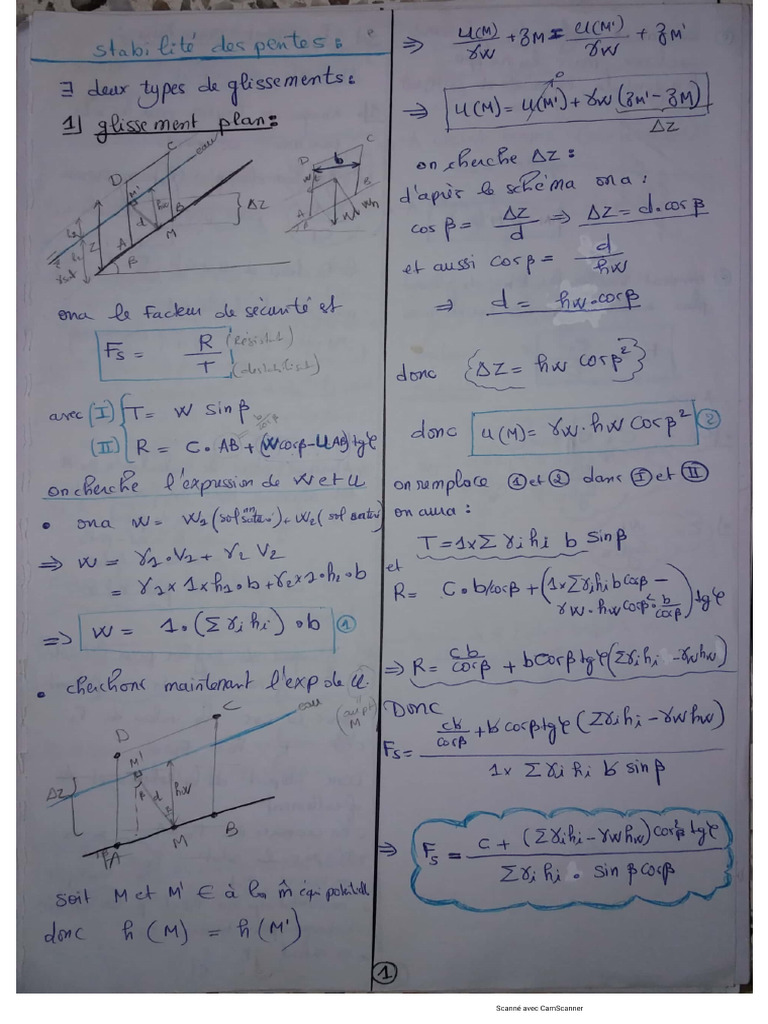 stabilité des pentes:
∃ deux types de glissements:
1) glissement plan:
D
C
eau
M'
hw
d
A
B
M
β
Z
ΔZ
D
C
b
A
B
ona le facteur de sécurité est
Fs = R / T
avec (I) T = W sinβ
(II) R = C. AB + (Wcosβ - UAB) tgφ
on cherche l'expression de W et U
• ona W = W1 (sol sature) + W2 (sol sature)
⇒ W = γ1.V1 + γ2 V2
= γ1 x 1 x h1.b + γ2 x 1.h2.b
⇒ W = 1.(Σγi hi).b ①
• cherchons maintenant l'exp de U.
(au pt M)
D
C
eau
M'
ΔZ
d
hw
β
A
M
B
soit M et M' ∈ à la m̂ équipotentielle
donc h(M) = h(M')
⇒ U(M)/γw + zM = U(M')/γw + zM'
⇒ U(M) = U(M') + γw (zM' - zM)
0
ΔZ
on cherche ΔZ:
d'après le schéma ona:
cosβ = ΔZ/d ⇒ ΔZ = d.cosβ
et aussi cosβ = d/hw
⇒ d = hw.cosβ
donc {ΔZ = hw cosβ²}
donc U(M) = γw.hw cosβ² ②
on remplace ① et ② dans Ⓘ et Ⓘ Ⓘ
on aura:
T = 1xΣ γi hi b sinβ
et
R = C.b/cosβ + (1xΣγi hi b cosβ -
γw.hw cosβ².b/cosβ) tgφ
⇒ R = cb/cosβ + b cosβ tgφ (Σγi hi - γw hw)
Donc
Fs = (cb/cosβ + b cosβ tgφ (Σγi hi - γw hw)) / (1x Σγi hi b sinβ)
⇒ Fs = (C + (Σγi hi - γw hw) cos²β tgφ) / (Σγi hi . sinβ cosβ)
1
Scanné avec CamScanner